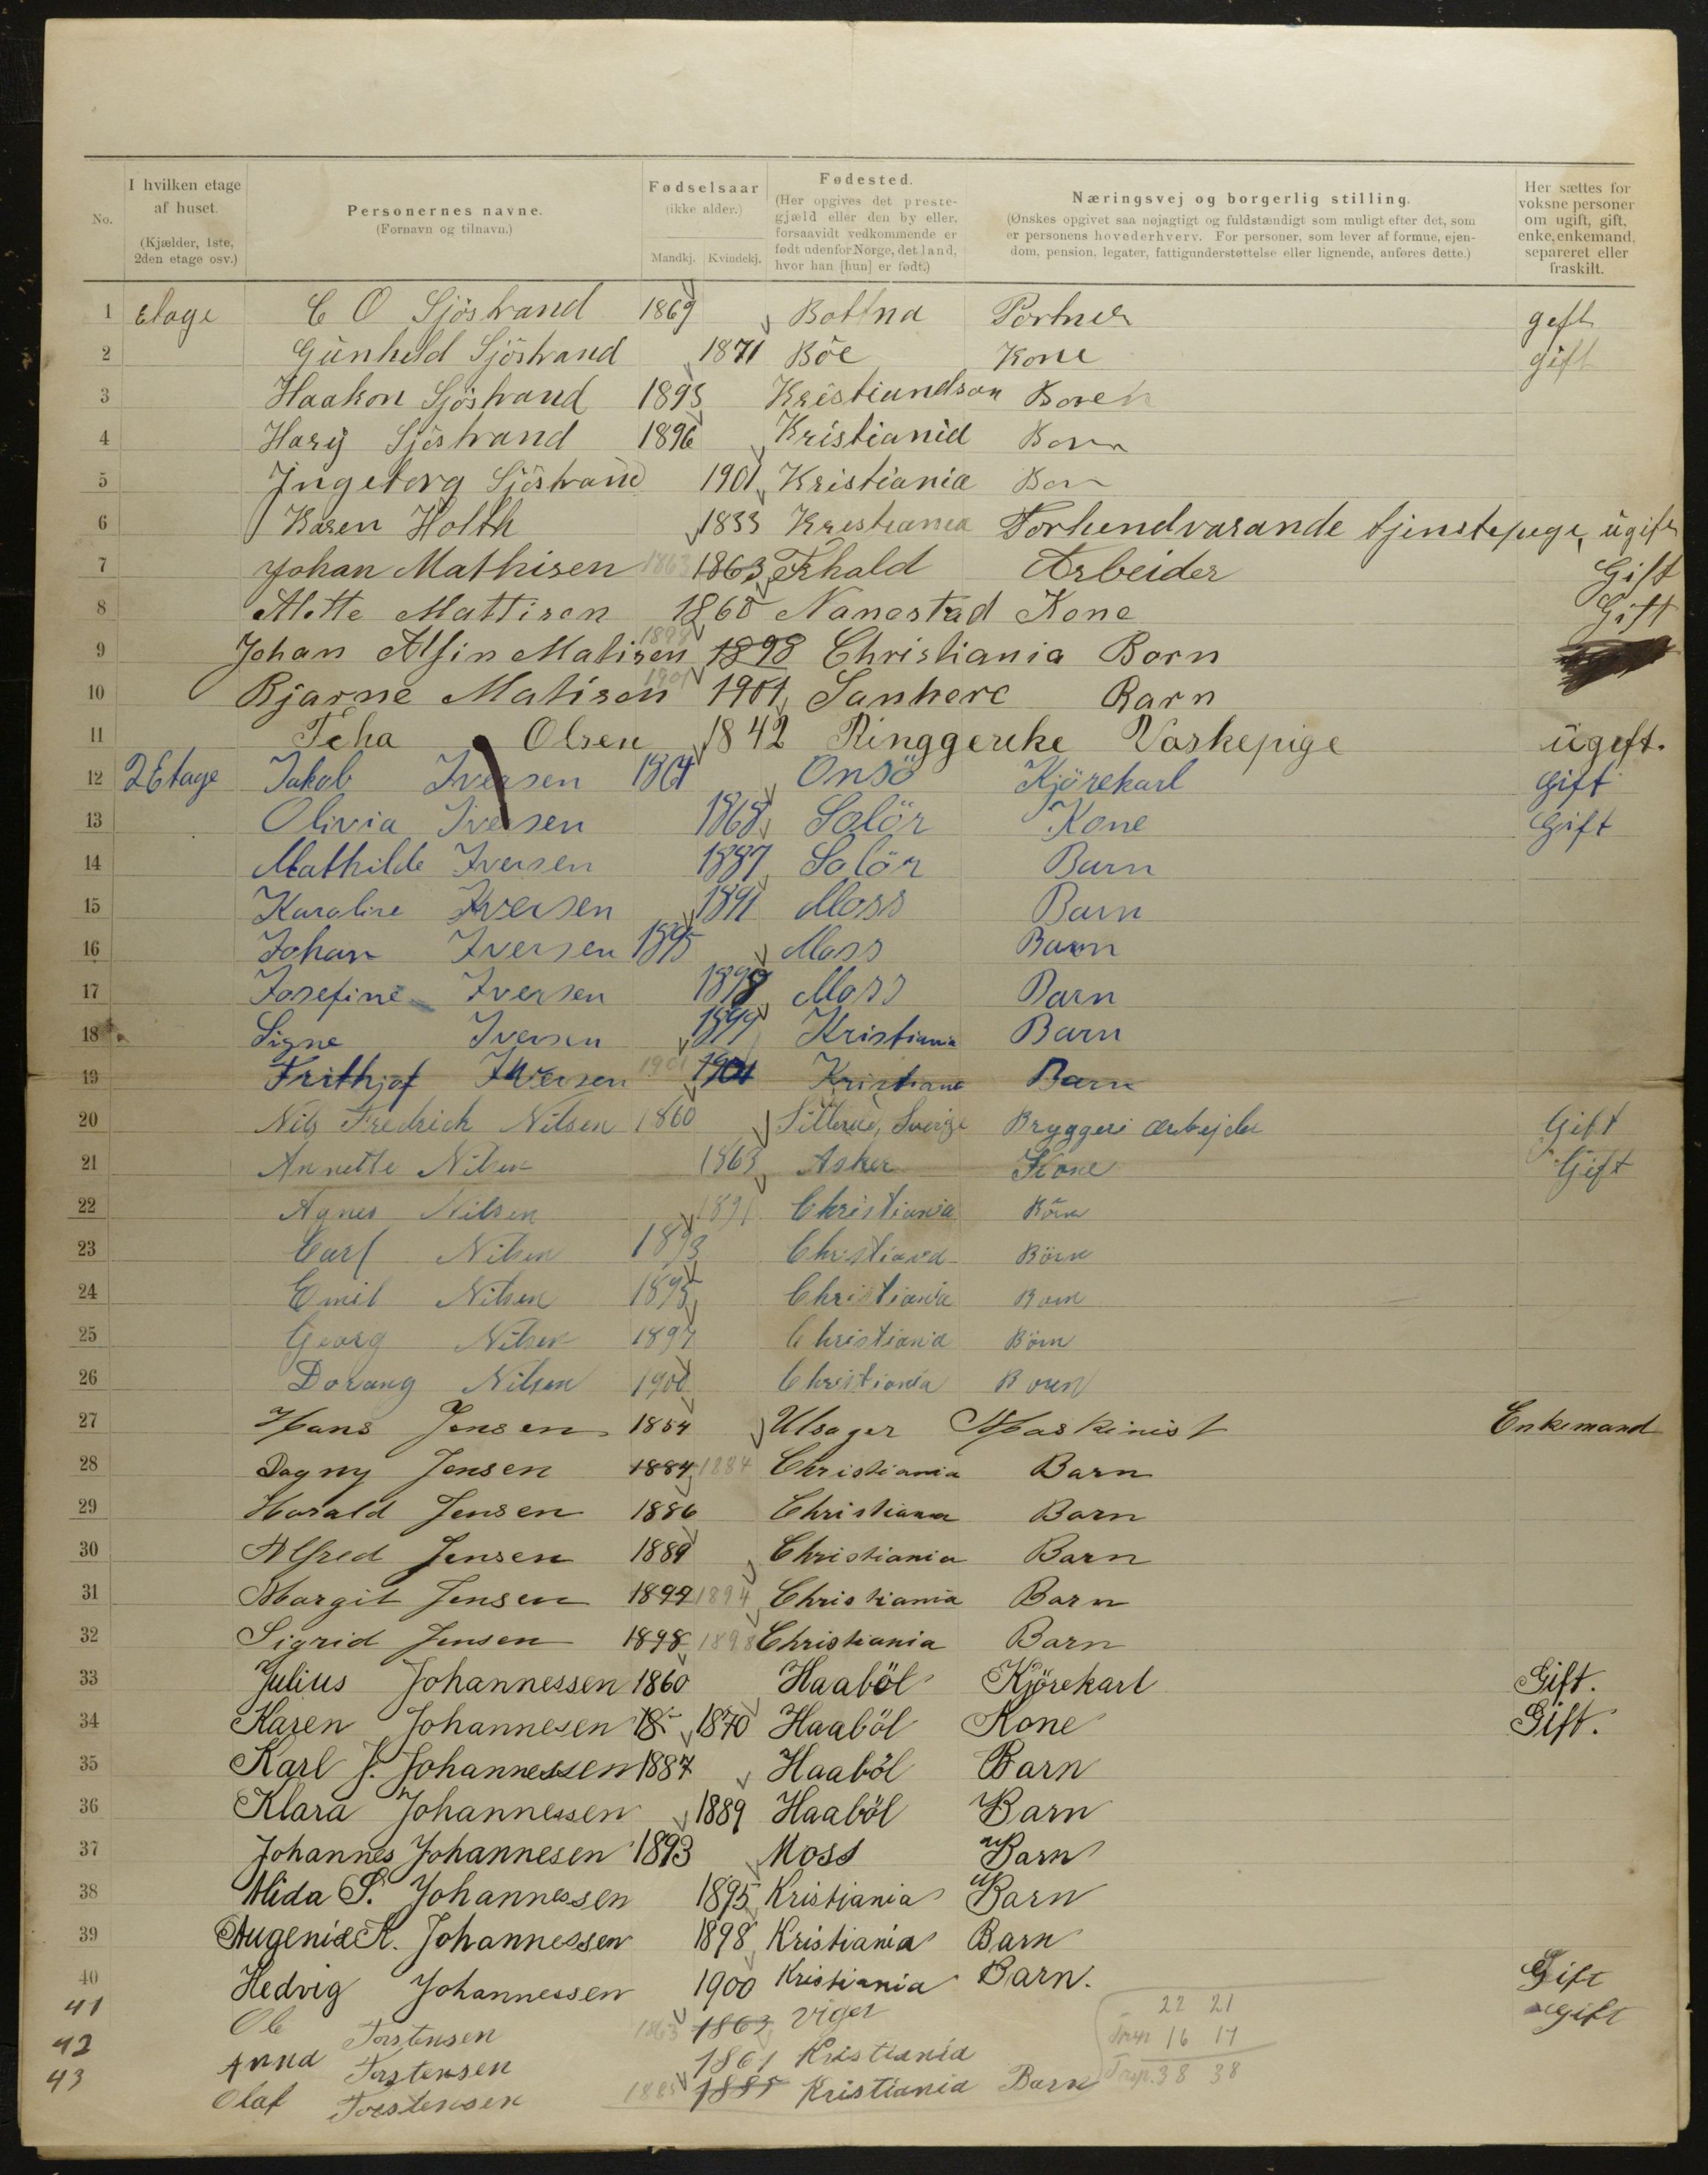 No.
I hvilken etage af huset. (Kjælder, 1ste, 2den etage osv.)
Personernes navne. (Fornavn og tilnavn.)
Fødselsaar (ikke alder.) Mandkj. Kvindekj.
Fødested. (Her opgives det prestegjæld eller den by eller, forsaavidt vedkommende er født udenfor Norge, det land, hvor han [hun] er født.)
Næringsvej og borgerlig stilling. (Ønskes opgivet saa nøjagtigt og fuldstændigt som muligt efter det, som er personens hovederhverv. For personer, som lever af formue, ejendom, pension, legater, fattigunderstøttelse eller lignende, anføres dette.)
Her sættes for voksne personer om ugift, gift, enke, enkemand, separeret eller fraskilt.
1 Etage C O Sjöstrand 1869 Bottna Portner gift
2 Günhild Sjöstrand 1871 Böe Kone gift
3 Haakon Sjöstrand 1895 Kristiundson Boren
4 Hary Sjöstrand 1896 Kristianid Born
5 Ingeborg Sjöstrand 1901 Kristiania Born
6 Karen Holth 1833 Kristiania Forhendvarande tjenstepege, ügift
7 Johan Mathisen 1863 1863 Arbeider Gift
8 Mattisen 1860 Nanestad Kone Gift
9 Johan Alfin Matisen 1898 1898 Christiania Born
10 Bjarne Matisen 1901 1901 Sanhere Barn
11 Olsen 1842 Ringgereke Vaskepige ügift.
12 2 Etage Jakob Iversen 1864 Onsö Kjörekarl gift
13 Olivia Iversen 1868 Solör Kone Gift
14 Mathilde Iversen 1887 Solör Barn
15 Karoline Iversen 1891 Moss Barn
16 Johan Iversen 1895 Moss Barn
17 Josefine Iversen 1898 Moss Barn
18 Signe Iversen 1899 Kristiania Barn
19 Frithjof Iversen 1901 1901 Kristiana Barn
20 Nils Fredrick Nilsen 1860 Sverige Bryggeri arbejder Gift
21 Annette Nilsen 1863 Asker Kone Gift
22 Agnes Nilsen 1891 Christiania Börn
23 Carl Nilsen 1893 Christiania Börn
24 Emil Nilsen 1895 Christiania Born
25 Georg Nilsen 1897 Christiania Börn
26 Nilsen 1900 Christiania Born
27 Hans Jensen 1854 Ulsager Maskinist Enkemand
28 Dagny Jensen 1884 1884 Christiania Barn
29 Harald Jensen 1886 Christiana Barn
30 Alfred Jensen 1889 Christiania Barn
31 Margit Jensen 1894 1894 Christiania Barn
32 Sigrid Jensen 1898 1898 Christiania Barn
33 Julius Johannessen 1860 Haaböl Kjörekarl Gift.
34 Karen Johannesen 18 1870 Haaböl Kone Gift.
35 Karl J. Johannessen 1887 Haaböl Barn
36 Klara Johannessen 1889 Haaböl Barn
37 Johannes Johannesen 1893 Moss Barn
38 Alida S. Johannessen 1895 Kristiania Barn
39 Augenie K. Johannessen 1898 Kristiania Barn
40 Hedvig Johannessen 1900 Kristiania Barn.
41 Ole Torstensen 1863 1863 Viger Gift
42 Anna Torstensen 1861 Kristiania gift
43 Olaf Torstensen 1885 1885 Kristiania Barn
22 21
16 17
38 38